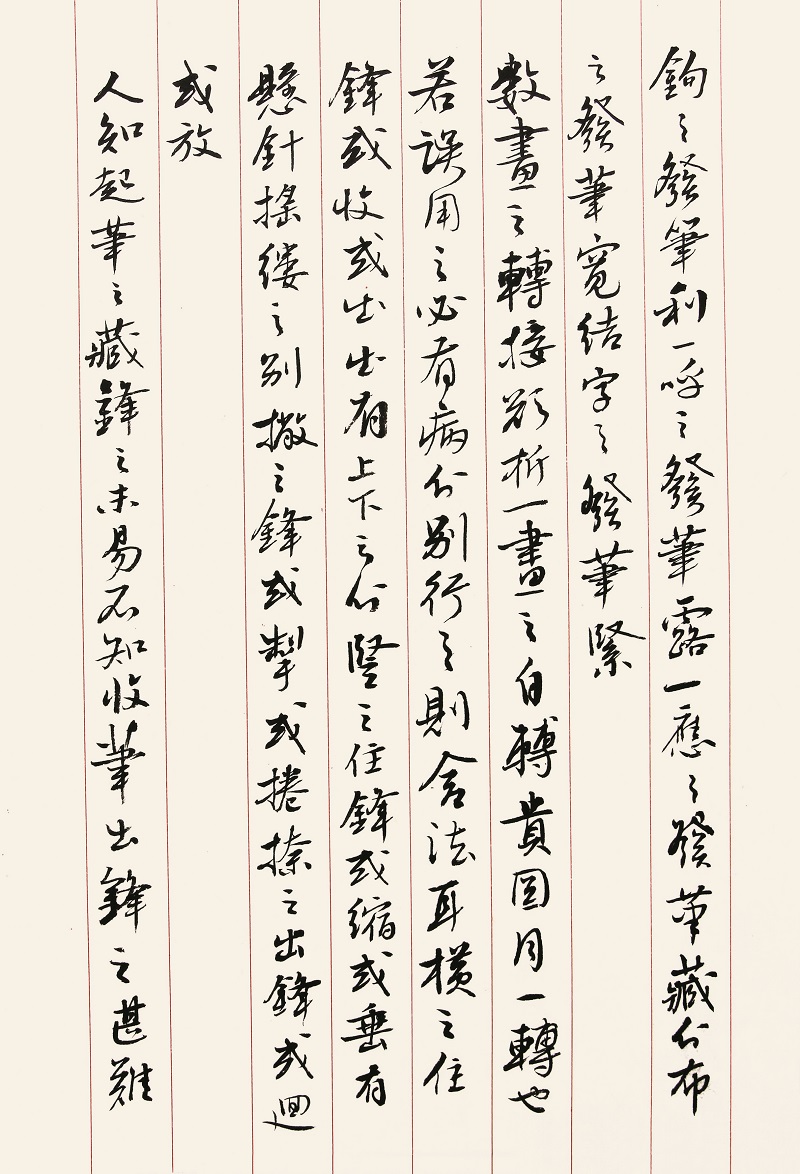 鉤之發筆利一呼之發筆露一應之發筆藏分布
之發筆寬結字之發筆緊
數畫之轉接欲折一畫之自轉貴圓同一轉也
若誤用之必有病分別行之則合法耳橫之住
鋒或收或出出有上下之分豎之住鋒或縮或垂有
懸針搖縷之別撇之鋒或掣或捲捺之出鋒或迴
或放
人知起筆之藏鋒之未易不知收筆出鋒之甚難